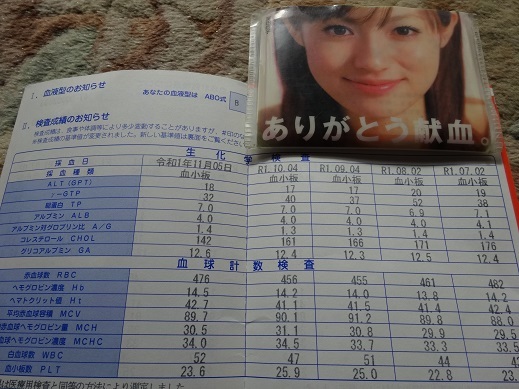 ありがとう献血。
Ⅰ. 血液型のお知らせ
あなたの血液型は ABO式 B
Ⅱ. 検査成績のお知らせ
検査成績は、食事や体調等により多少変動することがありますが、※印のな
※検査成績の基準値が変更されました。新しい基準値は裏面をご覧くださ
生化学検査
採血日 令和1年11月05日 R1.10.04 R1.09.04 R1.08.02 R1.07.02
採血種類 血小板 血小板 血小板 血小板 血小板
ALT(GPT) 18 17 17 20 19
γ-GTP 32 40 37 52 38
総蛋白 TP 7.0 7.0 7.0 6.9 7.1
アルブミン ALB 4.0 4.0 4.0 4.0 4.1
アルブミン対グロブリン比 A/G 1.4 1.3 1.4 1.3 1.4
コレステロール CHOL 142 161 166 171 176
グリコアルブミン GA 12.6 12.4 12.3 12.5 12.4
血球計数検査
赤血球数 RBC 476 456 455 461 482
ヘモグロビン濃度 Hb 14.5 14.2 14.0 13.8 14.2
ヘマトクリット値 Ht 42.7 41.1 41.5 41.4 42.4
平均赤血球容積 MCV 89.7 90.1 91.2 89.8 88.0
赤血球ヘモグロビン量 MCH 30.5 31.1 30.8 29.9 29.5
血球ヘモグロビン濃度 MCHC 34.0 34.5 33.7 33.3 33.5
白血球数 WBC 52 47 51 44
血小板数 PLT 23.6 25.9 25.0 22.8 23.
は医療用検査と同等の方法により測定しました